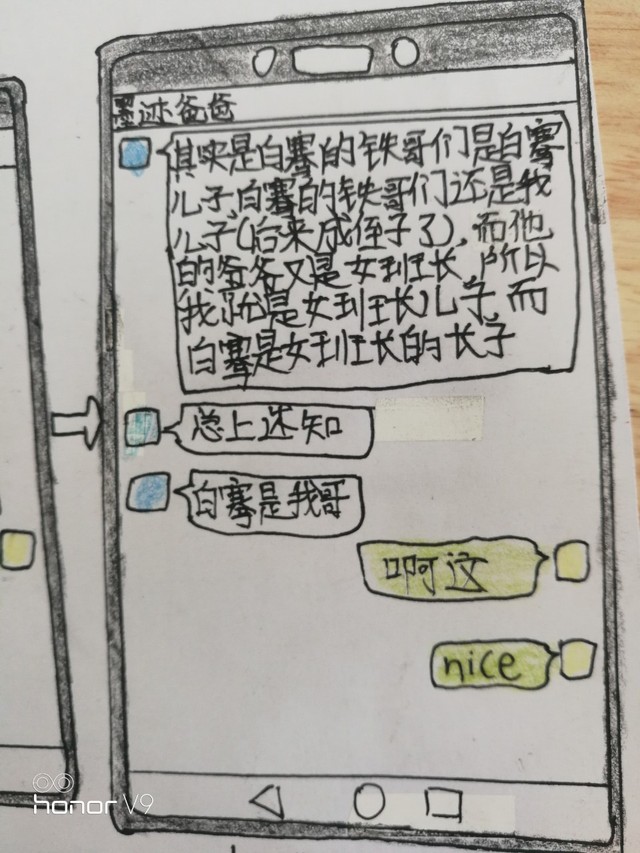 墨迹爸爸
其实是白骞的铁哥们是白骞
儿子,白骞的铁哥们还是我
儿子(后来成侄子了),而他
的爸爸又是女班长,所以
我就是女班长儿子,而
白骞是女班长的长子
总上述知
白骞是我哥
啊这
nice
honor V9